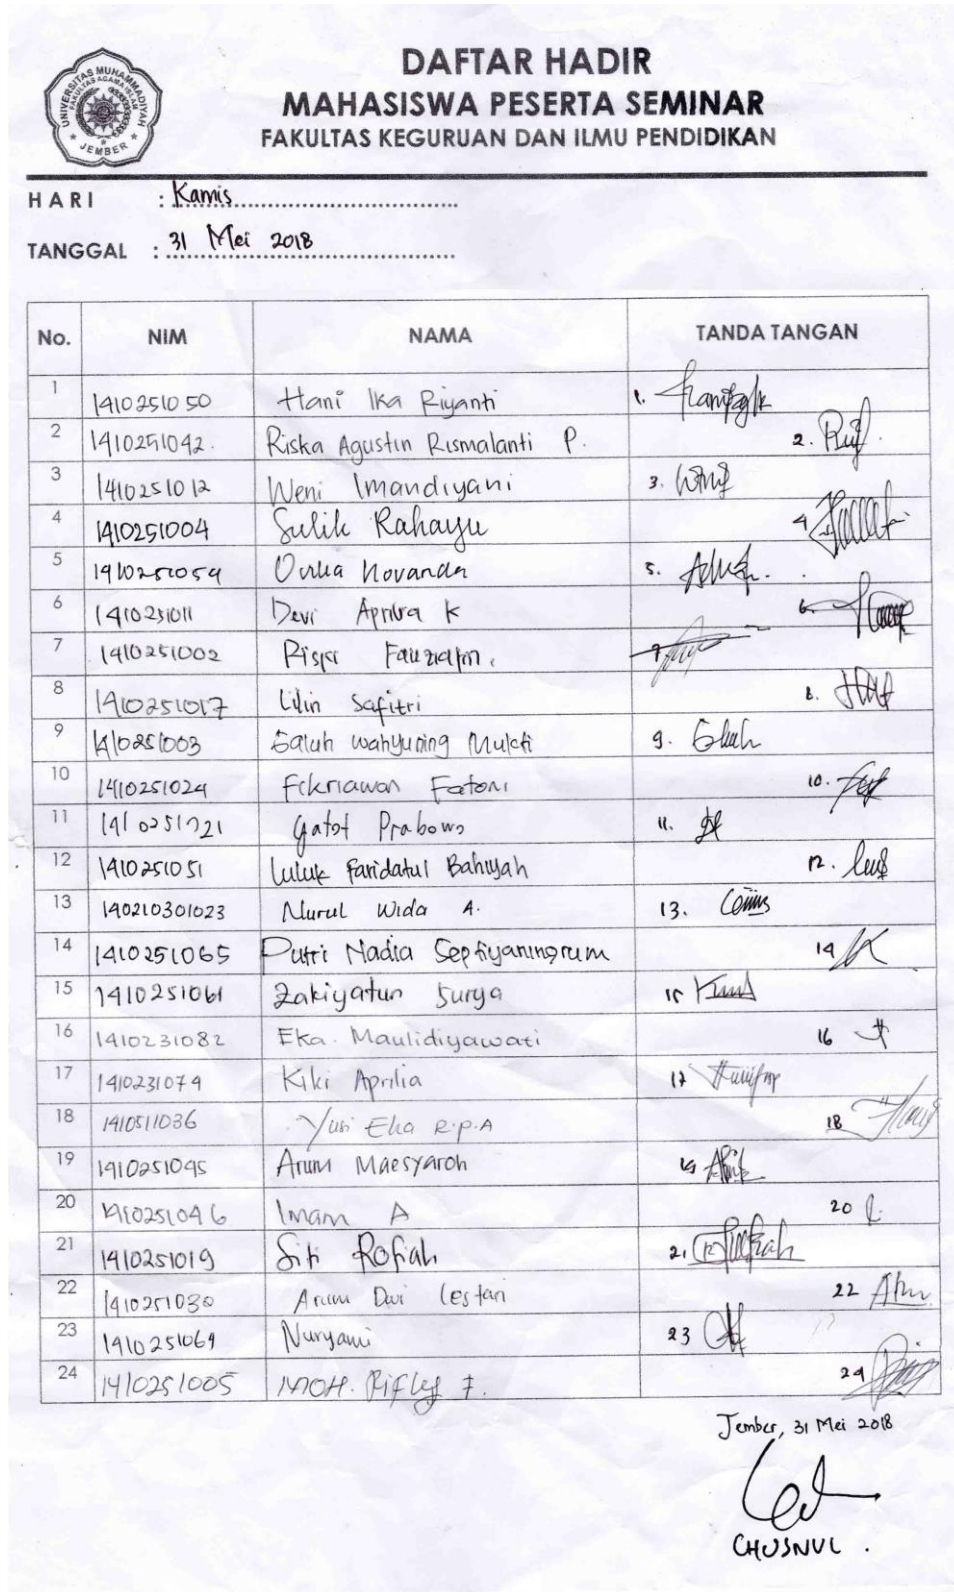 UNIVERSITAS MUHAMMADIYAH
FAKULTAS AGAMA ISLAM
JEMBER
DAFTAR HADIR
MAHASISWA PESERTA SEMINAR
FAKULTAS KEGURUAN DAN ILMU PENDIDIKAN
HARI : Kamis
TANGGAL : 31 Mei 2018
No. NIM NAMA TANDA TANGAN
1 1410251050 Hani Ika Riyanti 1.
2 1410251042. Riska Agustin Rismalanti P. 2.
3 1410251012 Weni Imandiyani 3.
4 1410251004 Sulik Rahayu 4
5 1410251054 Novanda 5.
6 1410251011 Devi Aprilia K 6.
7 1410251002 7
8 1410251017 Lilin Safitri 8.
9 1410251003 Galuh Wahyuning Mukti 9.
10 1410251024 Fikriawan Fatoni 10.
11 1410251021 Gatot Prabowo 11.
12 1410251051 Luluk Faridatul Bahiyah 12.
13 140210301023 Nurul Wida A. 13.
14 1410251065 Putri Nadia Septiyaningrum 14
15 1410251061 Zakiyatun Surya 15
16 1410231082 Eka. Maulidiyawati 16
17 1410231074 Kiki Aprilia 17
18 1410511036 Yusi Eka R.P.A 18
19 1410251045 Arum Maesyaroh 19
20 1410251046 Imam A 20
21 1410251019 Siti Rofiah 21
22 1410251030 Arum Dwi Lestari 22
23 1410251069 Nuryami 23
24 1410251005 MOH. Rifky F. 24
Jember, 31 Mei 2018
CHUSNUL .